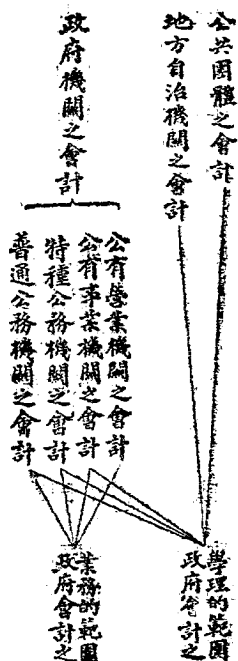 公共團體之會計
地方自治機關之會計
政府機關之會計
公有營業機關之會計
公有事業機關之會計
特種公務機關之會計
普通公務機關之會計
學理的範圍
政府會計之
業務的範圍
政府會計之